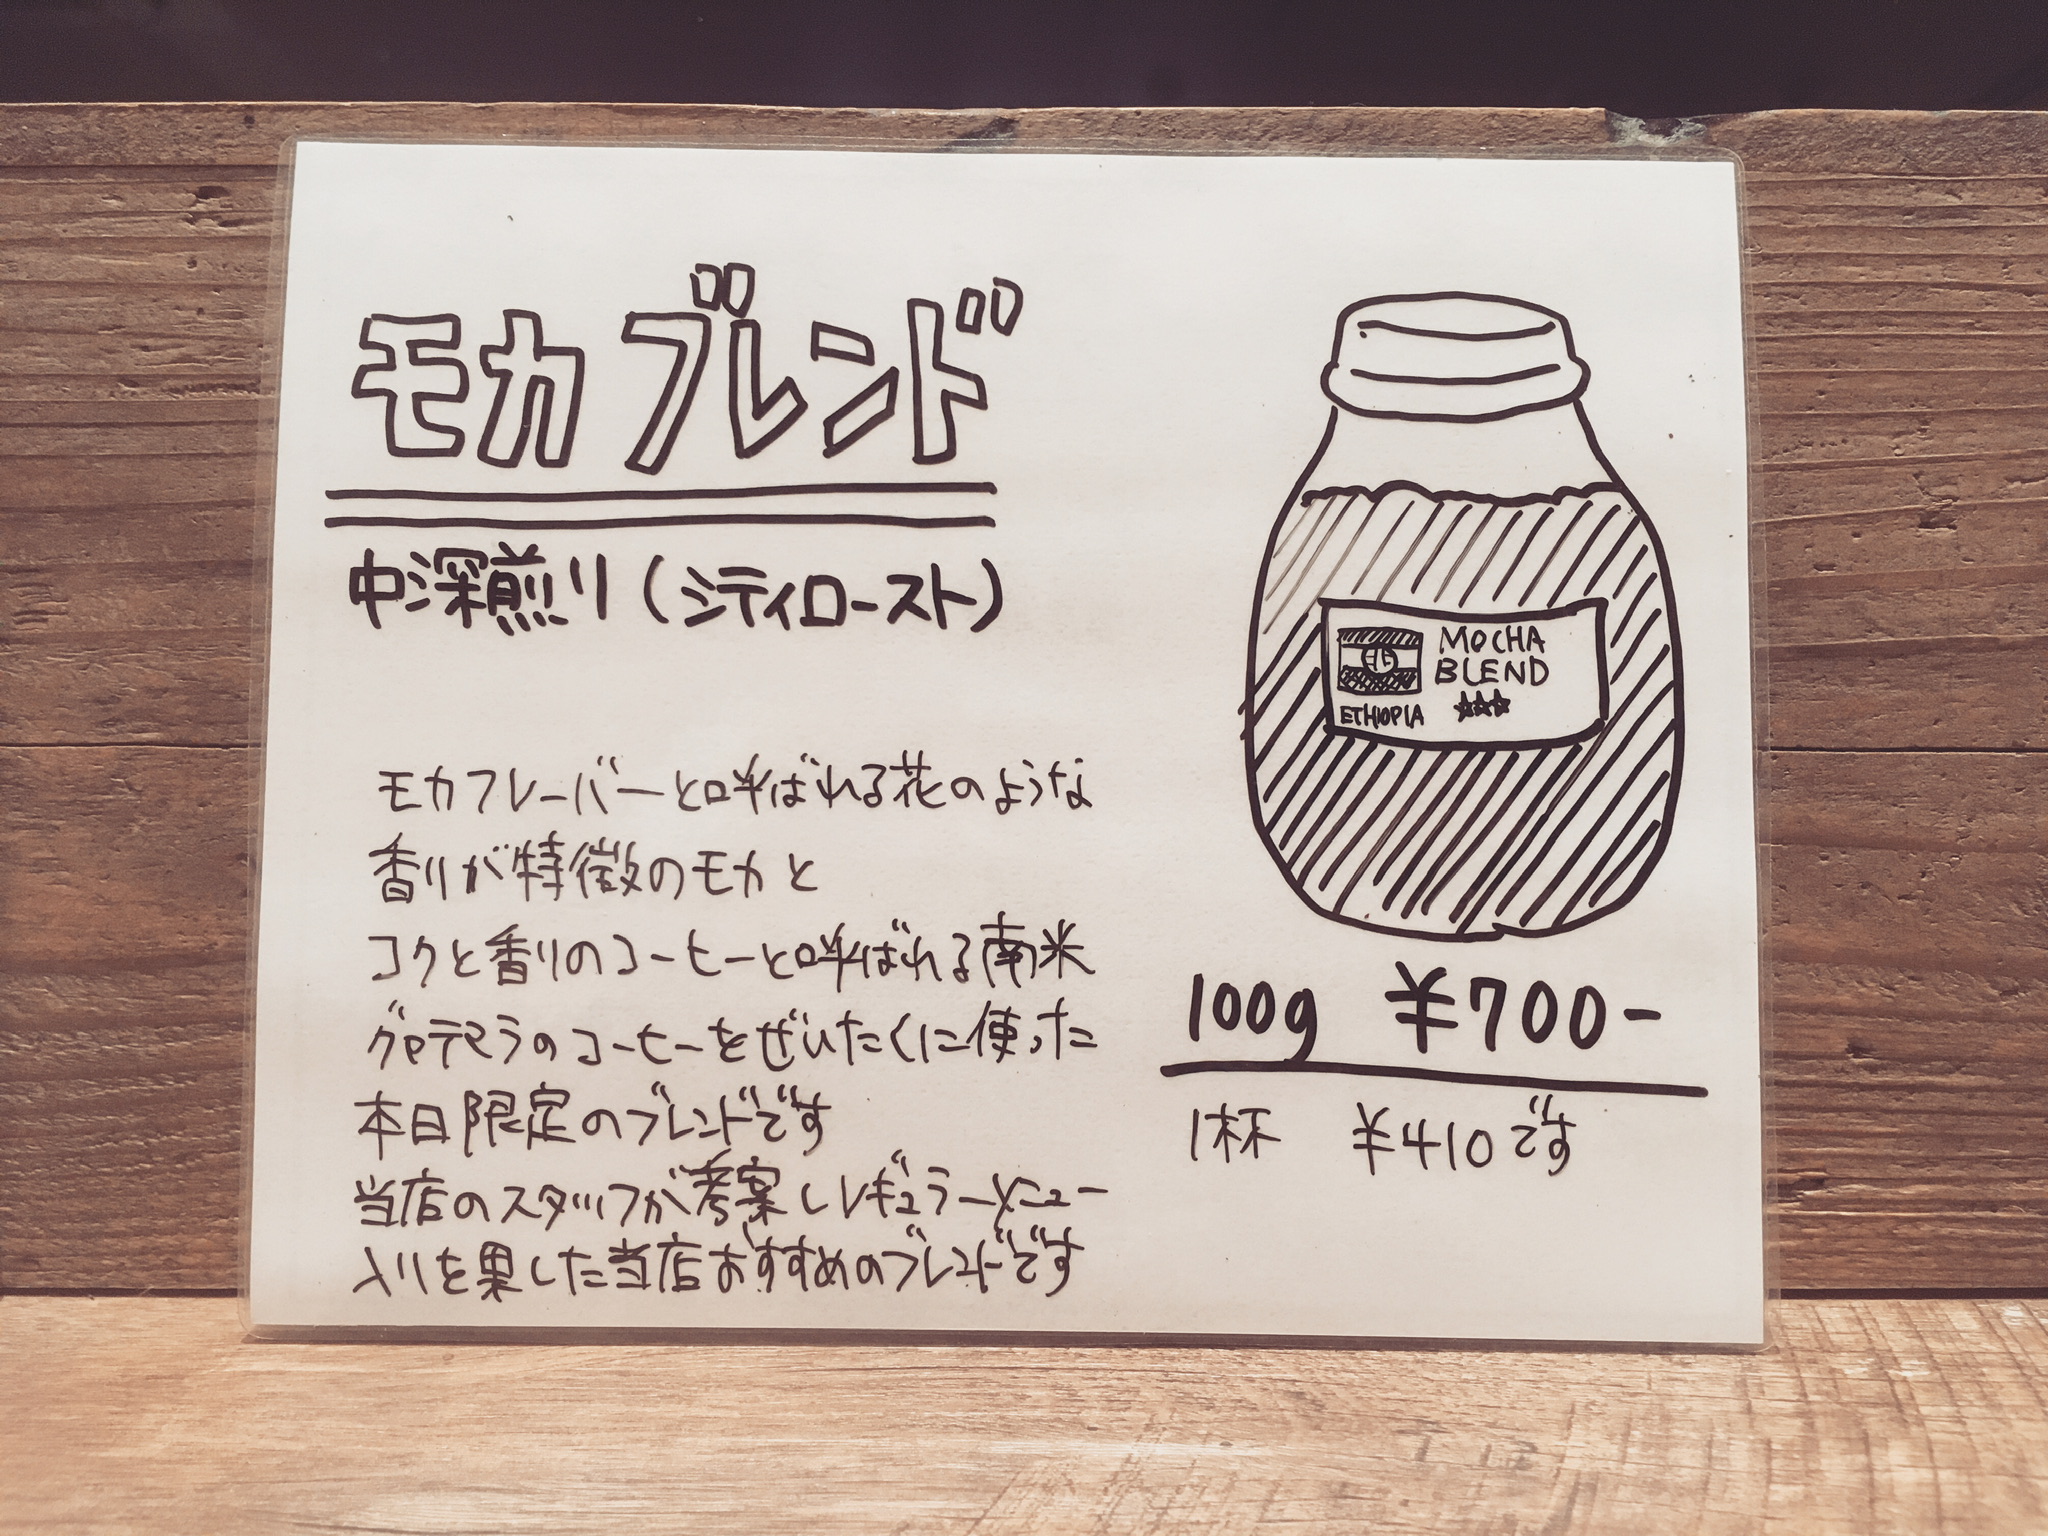 モカブレンド
中深煎り(シティロースト)
モカフレーバーと呼ばれる花のような
香りが特徴のモカと
コクと香りのコーヒーと呼ばれる南米
グロテマラのコーヒーをぜいたくに使った
本日限定のブレンドです
当店のスタッフが考案しレギュラーメニュー
入りを果した当店おすすめのブレンドです
MOCHA
BLEND
ETHIOPIA
100g ¥700-
1杯 ¥410です